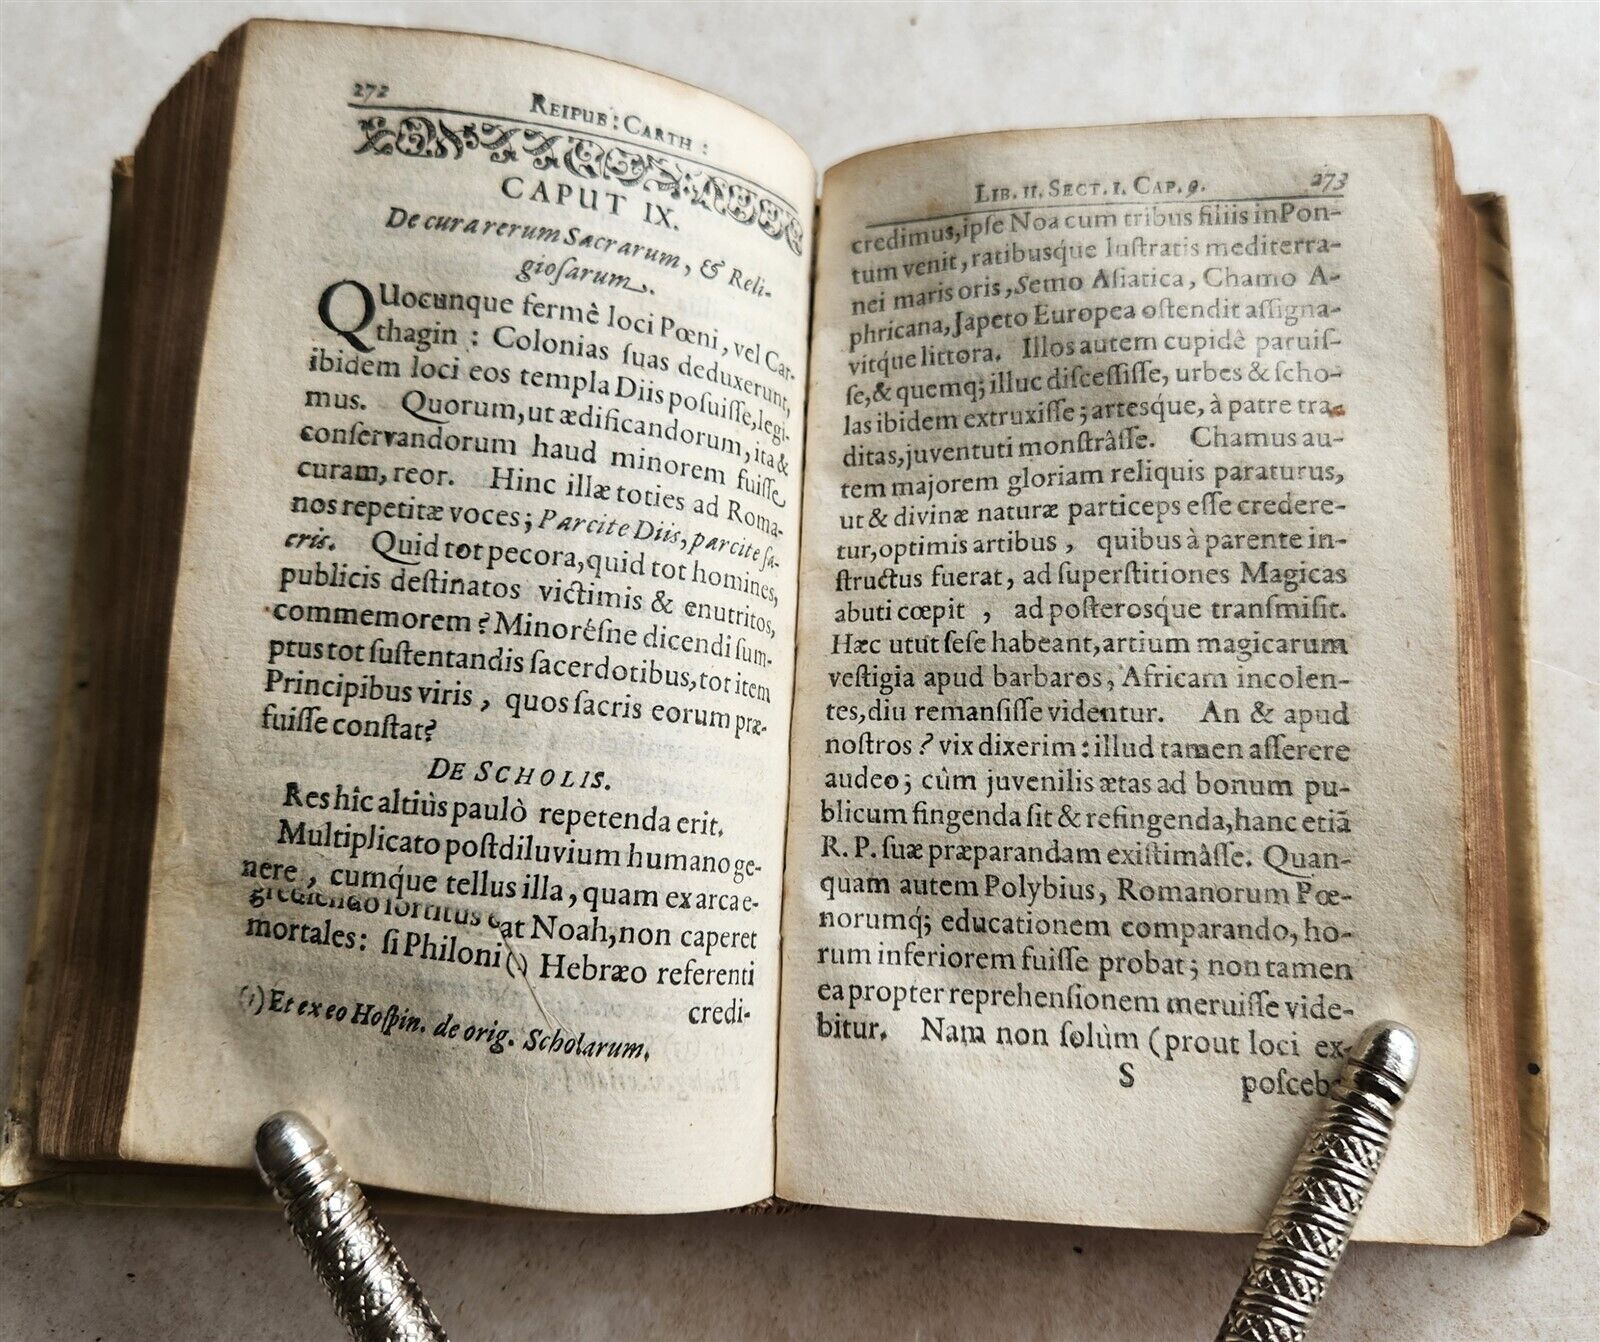 272
REIPUB: CARTH:
CAPUT IX.
De cura rerum Sacrarum, & Reli-
gioſarum.
QUocunque fermê loci Pœni, vel Car-
thagin: Colonias ſuas deduxerunt,
ibidem loci eos templa Diis poſuiſſe, legi-
mus. Quorum, ut ædificandorum, ita &
conſervandorum haud minorem fuiſſe
curam, reor. Hinc illæ toties ad Roma-
nos repetitæ voces; Parcite Diis, parcite ſa-
cris. Quid tot pecora, quid tot homines,
publicis deſtinatos victimis & enutritos,
commemorem? Minoréſne dicendi ſum-
ptus tot ſuſtentandis ſacerdotibus, tot item
Principibus viris, quos ſacris eorum præ-
fuiſſe conſtat?
DE SCHOLIS.
Res hîc altiùs paulò repetenda erit.
Multiplicato poſt diluvium humano ge-
nere, cumque tellus illa, quam ex arca e-
grediendo ſortitus erat Noah, non caperet
mortales: ſi Philoni (1) Hebræo referenti
credi-
(1) Et ex eo Hoſpin. de orig. Scholarum.
LIB. II. SECT. I. CAP. 9.
273
credimus, ipſe Noa cum tribus filiis in Pon-
tum venit, ratibusque luſtratis mediterra-
nei maris oris, Semo Aſiatica, Chamo A-
phricana, Japeto Europea oſtendit aſſigna-
vitque littora. Illos autem cupidè paruiſ-
ſe, & quemq; illuc diſceſſiſſe, urbes & ſcho-
las ibidem extruxiſſe; artesque, à patre tra-
ditas, juventuti monſtrâſſe. Chamus au-
tem majorem gloriam reliquis paraturus,
ut & divinæ naturæ particeps eſſe credere-
tur, optimis artibus, quibus à parente in-
ſtructus fuerat, ad ſuperſtitiones Magicas
abuti cœpit, ad poſterosque tranſmiſit.
Hæc utut ſeſe habeant, artium magicarum
veſtigia apud barbaros, Africam incolen-
tes, diu remanſiſſe videntur. An & apud
noſtros? vix dixerim: illud tamen aſſerere
audeo; cûm juvenilis ætas ad bonum pu-
blicum fingenda ſit & refingenda, hanc etiã
R. P. ſuæ præparandam exiſtimâſſe. Quan-
quam autem Polybius, Romanorum Pœ-
norumq́; educationem comparando, ho-
rum inferiorem fuiſſe probat; non tamen
ea propter reprehenſionem meruiſſe vide-
bitur. Nam non ſolùm (prout loci ex-
S
poſceb